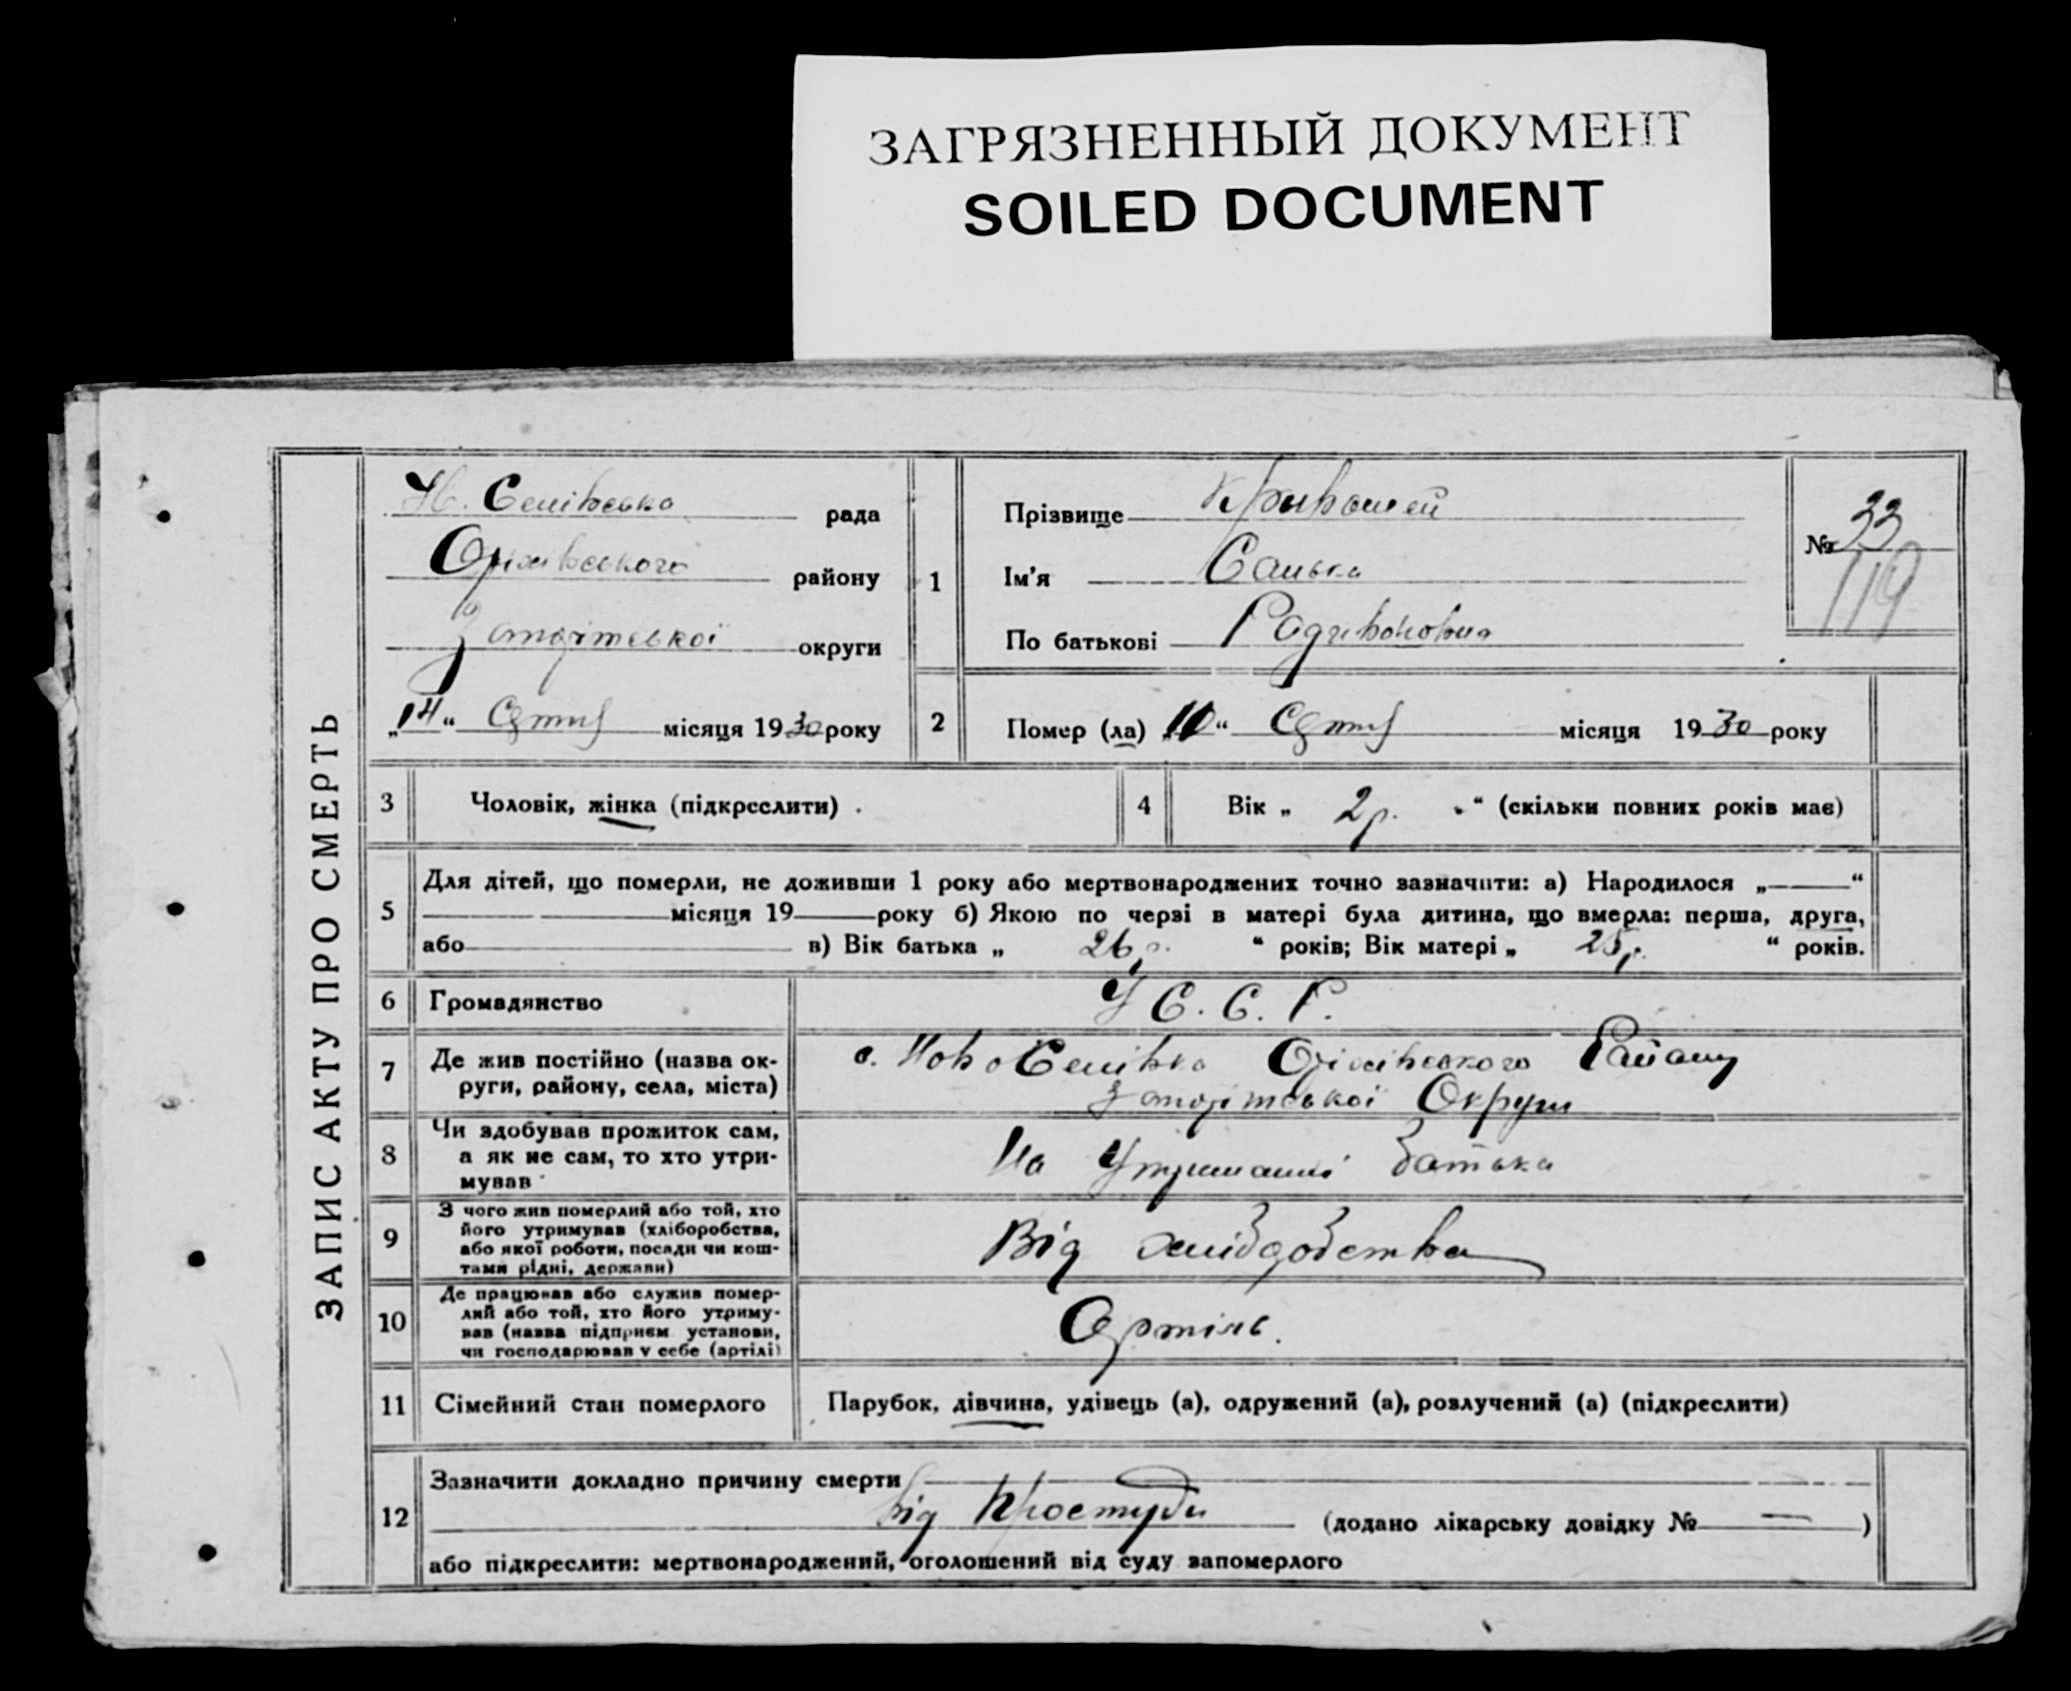 ЗАГРЯЗНЕННЫЙ ДОКУМЕНТ
SOILED DOCUMENT
ЗАПИС АКТУ ПРО СМЕРТЬ
Н. Селівська рада
Оріхівського району
округи
„14“ місяця 1930 року
1
Прізвище Кривошей
Ім'я Санька
По батькові
№ 33
119
2
Помер (ла) „10“ місяця 1930 року
3 Чоловік, жінка (підкреслити)
4 Вік „ 2 р. “ (скільки повних років має)
5 Для дітей, що померли, не доживши 1 року або мертвонароджених точно зазначити: а) Народилося „ “
місяця 19 року б) Якою по черзі в матері була дитина, що вмерла: перша, друга,
або в) Вік батька „ 26 р. “ років; Вік матері „ 25 р. “ років.
6 Громадянство У С. С. Р.
7 Де жив постійно (назва ок-
руги, району, села, міста)
с. НовоСелівка Оріхівського Району
Округи
8 Чи здобував прожиток сам,
а як не сам, то хто утри-
мував
На Утриманні батька
9 З чого жив померлий або той, хто
його утримував (хліборобства,
або якої роботи, посади чи кош-
тами рідні, держави)
Від хліборобства
10 Де працював або служив помер-
лий або той, хто його утриму-
вав (назва підприєм установи,
чи господарював у себе (артілі)
Артіль.
11 Сімейний стан померлого Парубок, дівчина, удівець (а), одружений (а), розлучений (а) (підкреслити)
12 Зазначити докладно причину смерти
від простуди (додано лікарську довідку № — )
або підкреслити: мертвонароджений, оголошений від суду запомерлого